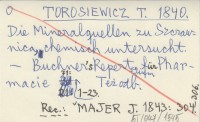 TOROSIEWICZ T. 1840.
Die Mineralquellen zu Szczaw-
nica, chemisch untersucht.
— Buchners Repert. für Phar-
macie
1-23.
Rec.: MAJER J. 1843: 304
306.